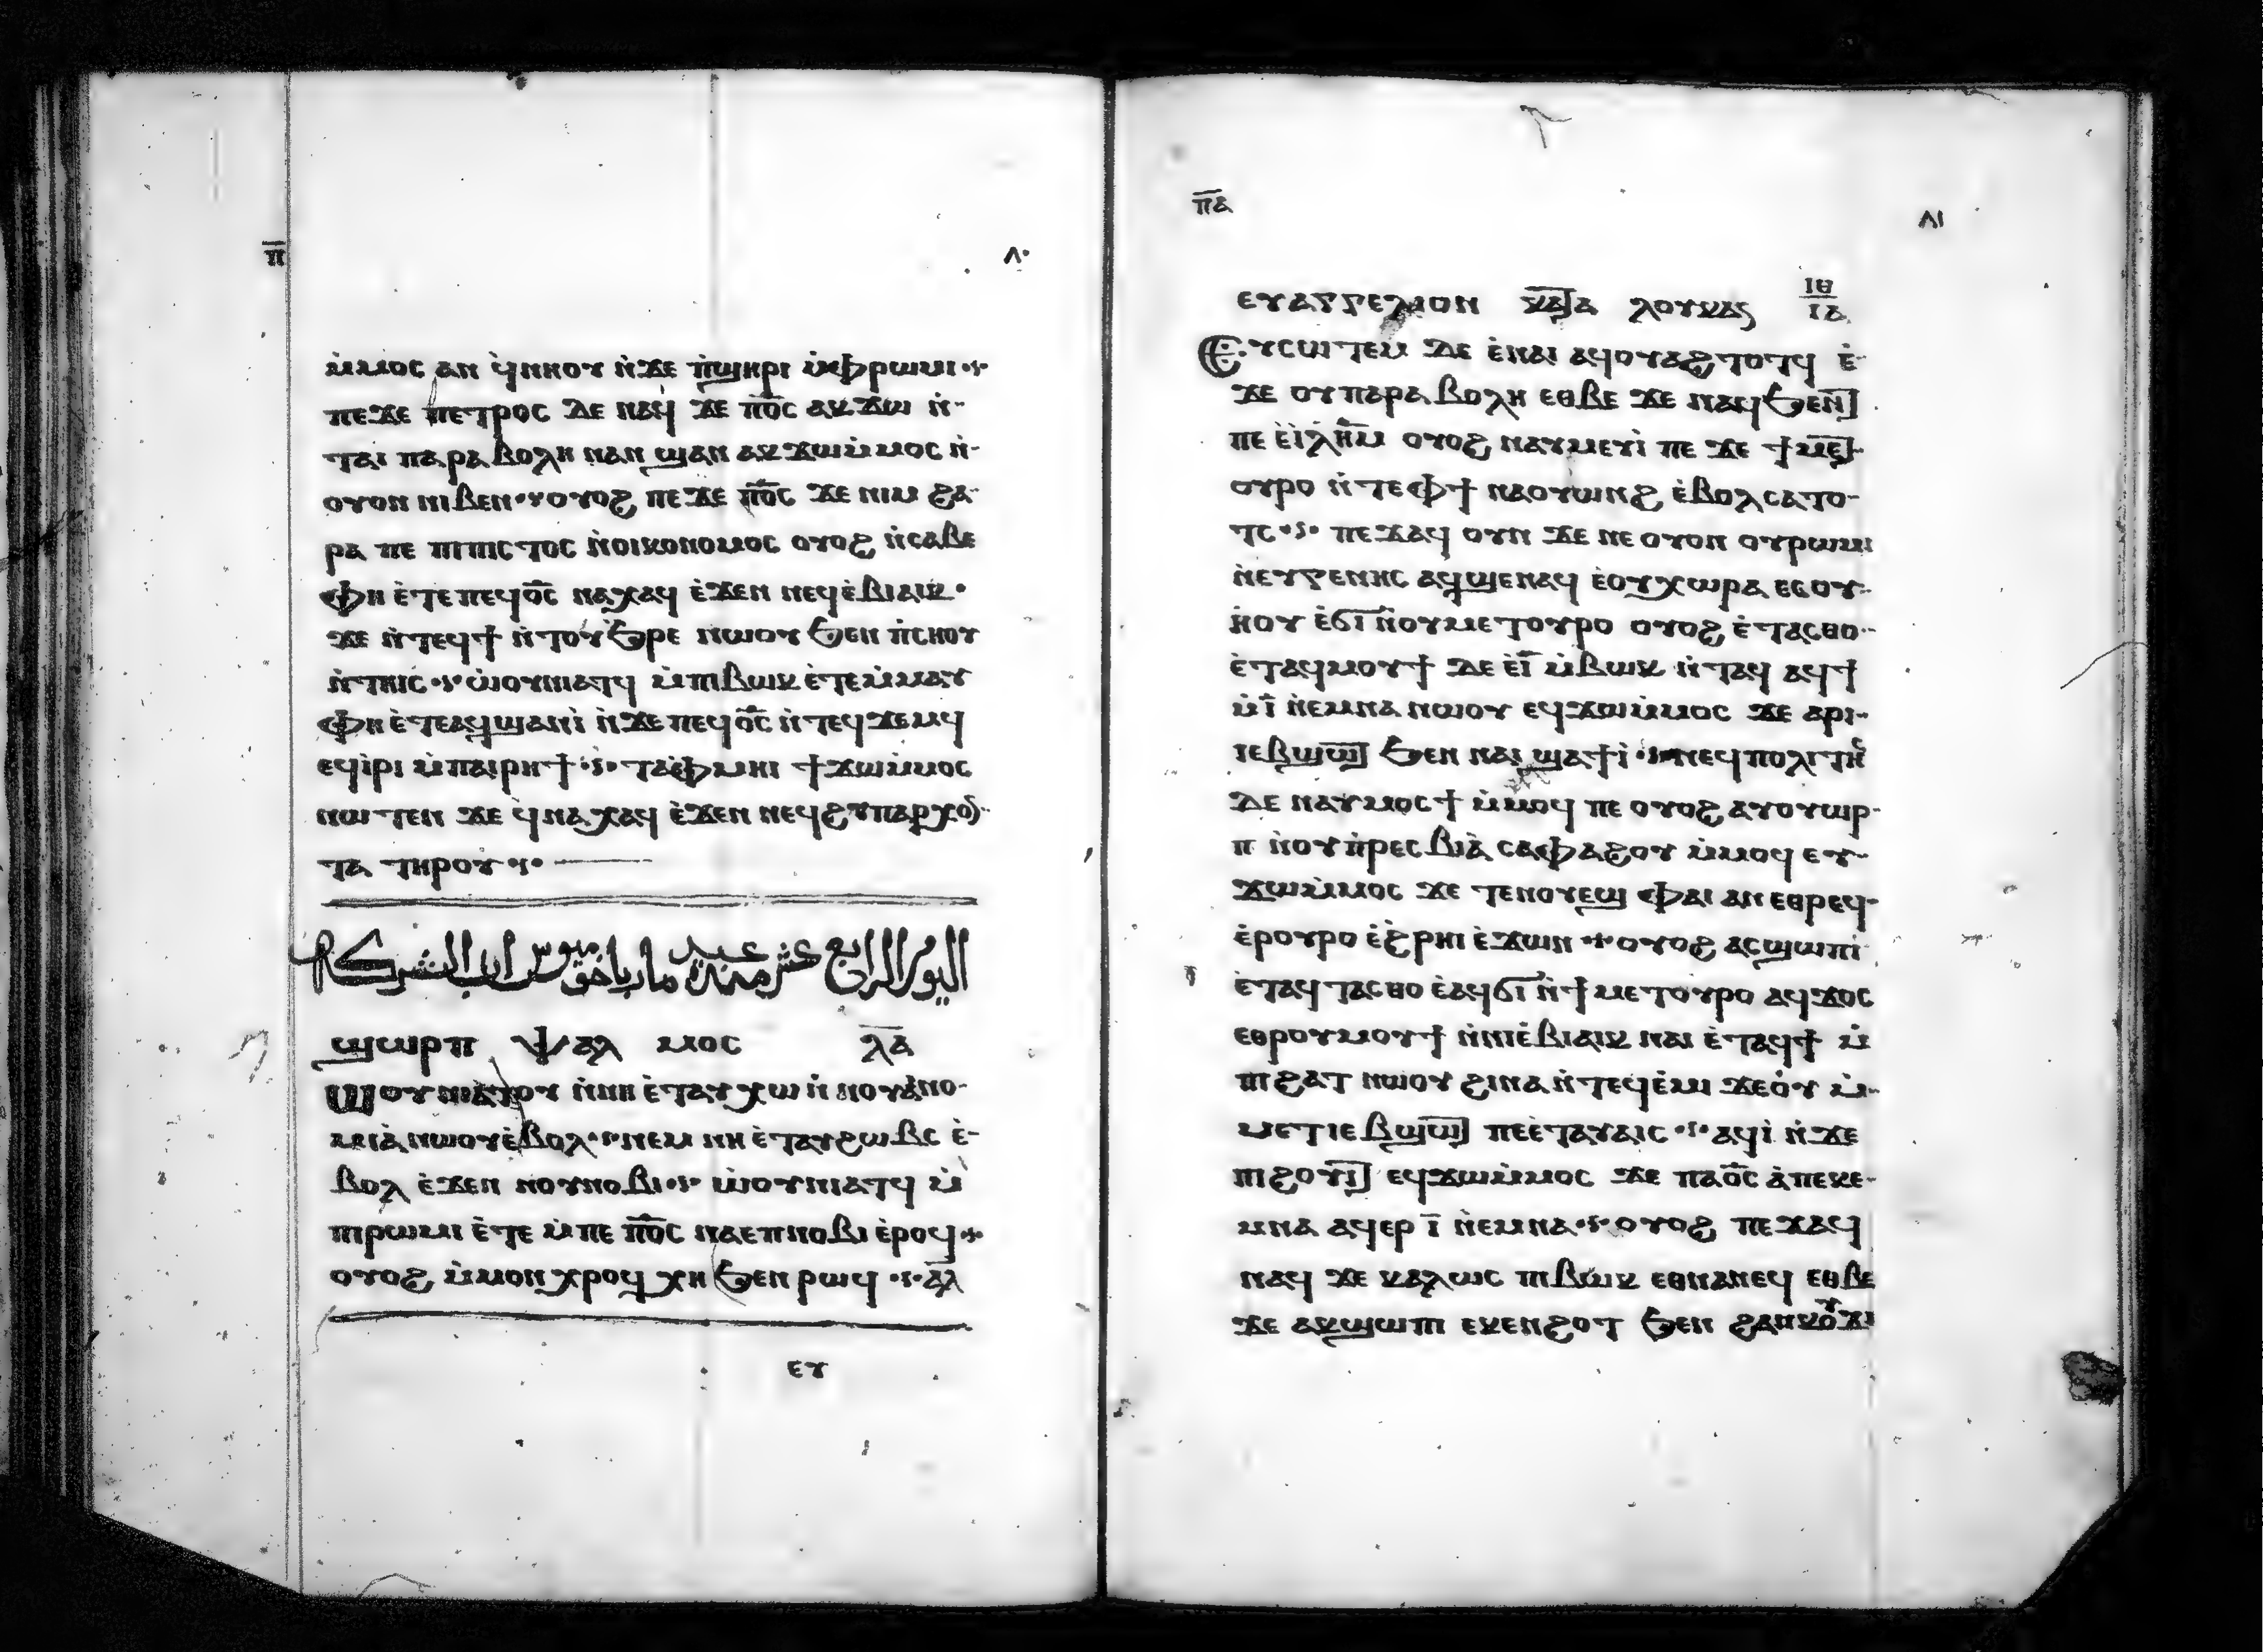 ⲡ̅ ٨٠
ⲙ̀ⲙⲟⲥ ⲁⲛ ϥ̀ⲛⲏⲟⲩ ⲛ̀ϫⲉ ⲡ̀ϣⲏⲣⲓ ⲙ̀ⲫⲣⲱⲙⲓ
ⲡⲉϫⲉ ⲡⲉⲧⲣⲟⲥ ⲇⲉ ⲛⲁϥ ϫⲉ ⲡⲟ̅ⲥ ⲁⲕϫⲱ ⲛ̀-
ⲧⲁⲓ ⲡⲁⲣⲁⲃⲟⲗⲏ ⲛⲁⲛ ϣⲁⲛ ⲁⲕϫⲱⲙ̀ⲙⲟⲥ ⲛ̀-
ⲟⲩⲟⲛ ⲛⲓⲃⲉⲛ ⲟⲩⲟϩ ⲡⲉϫⲉ ⲡⲟ̅ⲥ ϫⲉ ⲛⲓⲙ ϩⲁ-
ⲣⲁ ⲡⲉ ⲡⲓⲡⲓⲥⲧⲟⲥ ⲛ̀ⲟⲓⲕⲟⲛⲟⲙⲟⲥ ⲟⲩⲟϩ ⲛ̀ⲥⲁⲃⲉ
ⲫⲏ ⲉ̀ⲧⲉⲡⲉϥⲟ̅ⲥ ⲛⲁⲭⲁϥ ⲉ̀ϫⲉⲛ ⲛⲉϥⲉ̀ⲃⲓⲁⲓⲕ
ϫⲉ ⲛ̀ⲧⲉϥϯ ⲛ̀ⲧⲟⲩϧⲣⲉ ⲛⲱⲟⲩ ϧⲉⲛ ⲡ̀ⲥⲏⲟⲩ
ⲛ̀ⲧⲏⲓⲥ ⲱ̀ⲟⲩⲛⲓⲁⲧϥ ⲙ̀ⲡⲓⲃⲱⲕ ⲉ̀ⲧⲉⲙ̀ⲙⲁⲩ
ⲫⲏ ⲉ̀ⲧⲉⲁϥϣⲁⲛⲓ̀ ⲛ̀ϫⲉⲡⲉϥⲟ̅ⲥ ⲛ̀ⲧⲉϥϫⲉⲙϥ
ⲉϥⲓ̀ⲣⲓ ⲙ̀ⲡⲁⲓⲣⲏϯ ⲧⲁⲫⲙⲏⲓ ϯϫⲱⲙ̀ⲙⲟⲥ
ⲛⲱⲧⲉⲛ ϫⲉ ϥ̀ⲛⲁⲭⲁϥ ⲉ̀ϫⲉⲛ ⲛⲉϥϩⲩⲡⲁⲣⲭⲟ-
ⲧⲁ ⲧⲏⲣⲟⲩ
اليوم الرابع عشر منه عيد مار ياخوميوس اب الشركه
ϣⲱⲣⲡ ⲯⲁⲗⲙⲟⲥ ⲗ̅ⲁ̅
Ⲱⲟⲩⲛⲓⲁⲧⲟⲩ ⲛ̀ⲛⲏ ⲉ̀ⲧⲁⲩⲭⲱ ⲛ̀ⲛⲟⲩⲁ̀ⲛⲟ-
ⲙⲓⲁ̀ ⲛⲱⲟⲩⲉ̀ⲃⲟⲗ ⲛⲉⲙ ⲛⲏ ⲉ̀ⲧⲁⲩϩⲱⲃⲥ ⲉ̀-
ⲃⲟⲗ ⲉ̀ϫⲉⲛ ⲛⲟⲩⲛⲟⲃⲓ ⲱ̀ⲟⲩⲛⲓⲁⲧϥ ⲙ̀
ⲡⲓⲣⲱⲙⲓ ⲉ̀ⲧⲉ ⲙ̀ⲡⲉ ⲡⲟ̅ⲥ ⲛⲁⲉⲡⲛⲟⲃⲓ ⲉ̀ⲣⲟϥ
ⲟⲩⲟϩ ⲙ̀ⲙⲟⲛ ⲭⲣⲟϥ ⲭⲏ ϧⲉⲛ ⲣⲱϥ ⲁ̅ⲗ
ⲉⲩ
ⲡ̅ⲁ ٨١
ⲉⲩⲁⲅⲅⲉⲗⲓⲟⲛ ⲕⲁⲧⲁ ⲗⲟⲩⲕⲁⲥ ⲓⲑ ⲓⲁ
Ⲉⲩⲥⲱⲧⲉⲙ ⲇⲉ ⲉ̀ⲛⲁⲓ ⲁϥⲟⲩⲁϩⲧⲟⲧϥ ⲉ̀-
ϫⲉ ⲟⲩⲡⲁⲣⲁⲃⲟⲗⲏ ⲉⲑⲃⲉ ϫⲉ ⲛⲁϥϧⲉⲛⲧ
ⲡⲉ ⲉ̀ⲓ̀ⲗ̅ⲏ̅ⲙ̅ ⲟⲩⲟϩ ⲛⲁⲩⲙⲉⲩⲓ̀ ⲡⲉ ϫⲉ ϯⲙⲉⲧ-
ⲟⲩⲣⲟ ⲛ̀ⲧⲉⲫϯ ⲛⲁⲟⲩⲱⲛϩ ⲉ̀ⲃⲟⲗ ⲥⲁⲧⲟ-
ⲧⲥ ⲡⲉϫⲁϥ ⲟⲩⲛ ϫⲉ ⲛⲉ ⲟⲩⲟⲛ ⲟⲩⲣⲱⲙⲓ
ⲛ̀ⲉⲩⲅⲉⲛⲏⲥ ⲁϥϣⲉⲛⲁϥ ⲉ̀ⲟⲩⲭⲱⲣⲁ ⲉⲥⲟⲩ-
ⲏ̀ⲟⲩ ⲉ̀ϭⲓ ⲛ̀ⲟⲩⲙⲉⲧⲟⲩⲣⲟ ⲟⲩⲟϩ ⲉ̀ⲧⲁⲥⲑⲟ-
ⲉ̀ⲧⲁϥⲙⲟⲩϯ ⲇⲉ ⲉ̀ⲓ̅ ⲙ̀ⲃⲱⲕ ⲛ̀ⲧⲁϥ ⲁϥϯ
ⲙ̀ⲓ̅ ⲛ̀ⲉⲙⲛⲁ ⲛⲱⲟⲩ ⲉϥϫⲱⲙ̀ⲙⲟⲥ ϫⲉ ⲁⲣⲓ-
ⲓⲉⲃϣⲱⲧ ϧⲉⲛ ⲛⲁⲓ ϣⲁϯⲓ̀ ⲛⲉϥⲡⲟⲗⲓⲧⲏⲥ
ⲇⲉ ⲛⲁⲩⲙⲟⲥϯ ⲙ̀ⲙⲟϥ ⲡⲉ ⲟⲩⲟϩ ⲁⲩⲟⲩⲱⲣ-
ⲡ ⲛ̀ⲟⲩⲡ̀ⲣⲉⲥⲃⲓⲁ̀ ⲥⲁⲫⲁϩⲟⲩ ⲙ̀ⲙⲟϥ ⲉⲩ-
ϫⲱⲙ̀ⲙⲟⲥ ϫⲉ ⲧⲉⲛⲟⲩⲉϣ ⲫⲁⲓ ⲁⲛ ⲉⲑⲣⲉϥ-
ⲉ̀ⲣⲟⲩⲣⲟ ⲉ̀ϩⲣⲏⲓ ⲉ̀ϫⲱⲛ ⲟⲩⲟϩ ⲁⲥϣⲱⲡⲓ
ⲉ̀ⲧⲁϥⲧⲁⲥⲑⲟ ⲉ̀ⲁϥϭⲓ ⲛ̀ϯⲙⲉⲧⲟⲩⲣⲟ ⲁϥϫⲟⲥ
ⲉⲑⲣⲟⲩⲙⲟⲩϯ ⲛ̀ⲛⲓⲉ̀ⲃⲓⲁⲓⲕ ⲛⲁⲓ ⲉ̀ⲧⲁϥϯ ⲙ̀
ⲡⲓϩⲁⲧ ⲛⲱⲟⲩ ϩⲓⲛⲁ ⲛ̀ⲧⲉϥⲉ̀ⲙⲓ ϫⲉⲟ̀ⲩ ⲙ̀-
ⲙⲉⲧⲓⲉⲃϣⲱⲧ ⲡⲉⲉ̀ⲧⲁⲩⲁⲓⲥ ⲁϥⲓ̀ ⲛ̀ϫⲉ
ⲡⲓϩⲟⲩⲓⲧ ⲉϥϫⲱⲙ̀ⲙⲟⲥ ϫⲉ ⲡⲁⲟ̅ⲥ ⲁ̀ⲡⲉⲕⲉ-
ⲙⲛⲁ ⲁϥⲉⲣ ⲓ̅ ⲛ̀ⲉⲙⲛⲁ ⲟⲩⲟϩ ⲡⲉϫⲁϥ
ⲛⲁϥ ϫⲉ ⲕⲁⲗⲱⲥ ⲡⲓⲃⲱⲕ ⲉⲑⲛⲁⲛⲉϥ ⲉⲑⲃⲉ
ϫⲉ ⲁⲕϣⲱⲡⲓ ⲉⲕⲉⲛϩⲟⲧ ϧⲉⲛ ϩⲁⲛⲕⲟⲩϫⲓ